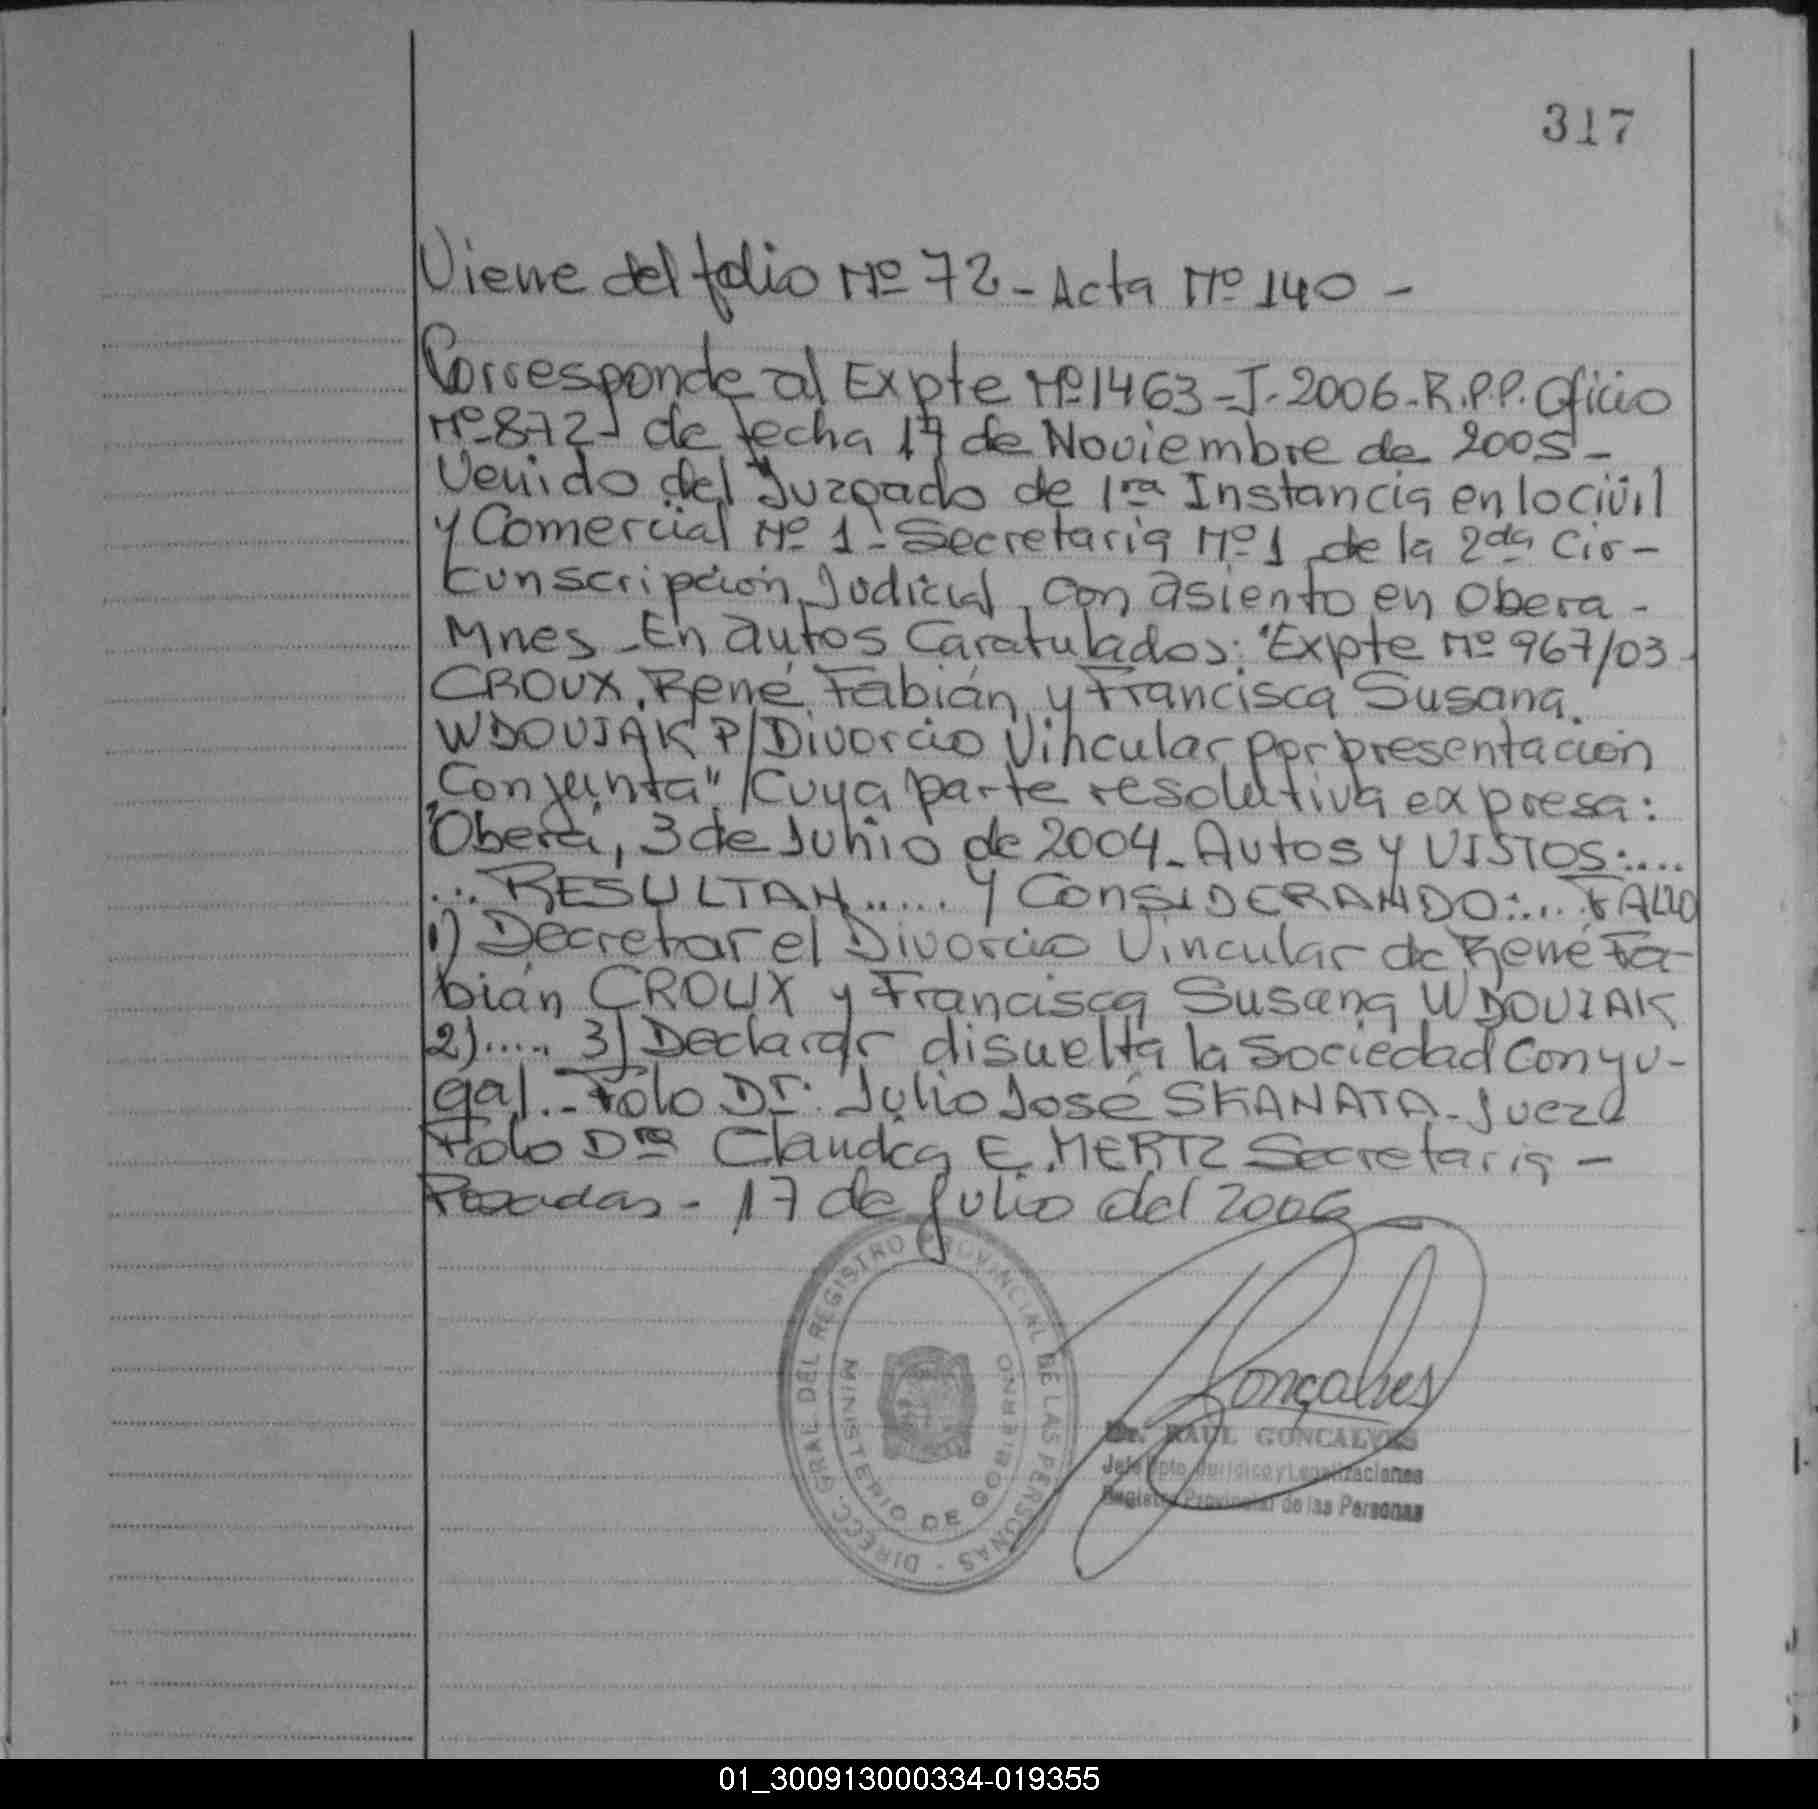 317
Viene del folio Nº 72 - Acta Nº 140 -
Corresponde al Expte Nº 1463-J-2006-R.P.P. Oficio
Nº-872- de fecha 17 de Noviembre de 2005-
Venido del Juzgado de 1ra Instancia en lo Civil
y Comercial Nº 1- Secretaria Nº 1 de la 2da Cir-
cunscripción Judicial, con asiento en Obera -
Mnes - En autos Caratulados: "Expte Nº 967/03
CROUX, René Fabián y Francisca Susana
WDOVIAK P/ Divorcio Vincular por presentación
Conjunta" Cuya parte resolutiva expresa:
"Oberá, 3 de Junio de 2004- Autos y VISTOS:....
... RESULTAN..... Y CONSIDERANDO:... FALLO
1) Decretar el Divorcio Vincular de René Fa-
bián CROUX y Francisca Susana WDOVIAK
2)..... 3) Declarar disuelta la Sociedad Conyu-
gal.- Fdo Dr. Julio José SKANATA - Juez
Fdo Dra Claudia E. MERTZ Secretaria -
Posadas - 17 de Julio del 2006
DIRECC. GRAL. DEL REGISTRO PROVINCIAL DE LAS PERSONAS -
MINISTERIO DE GOBIERNO
Gonçalves
Dr. RAUL GONCALVES
Jefe Dpto. Jurídico y Legalizaciones
Registro Provincial de las Personas
01_300913000334-019355